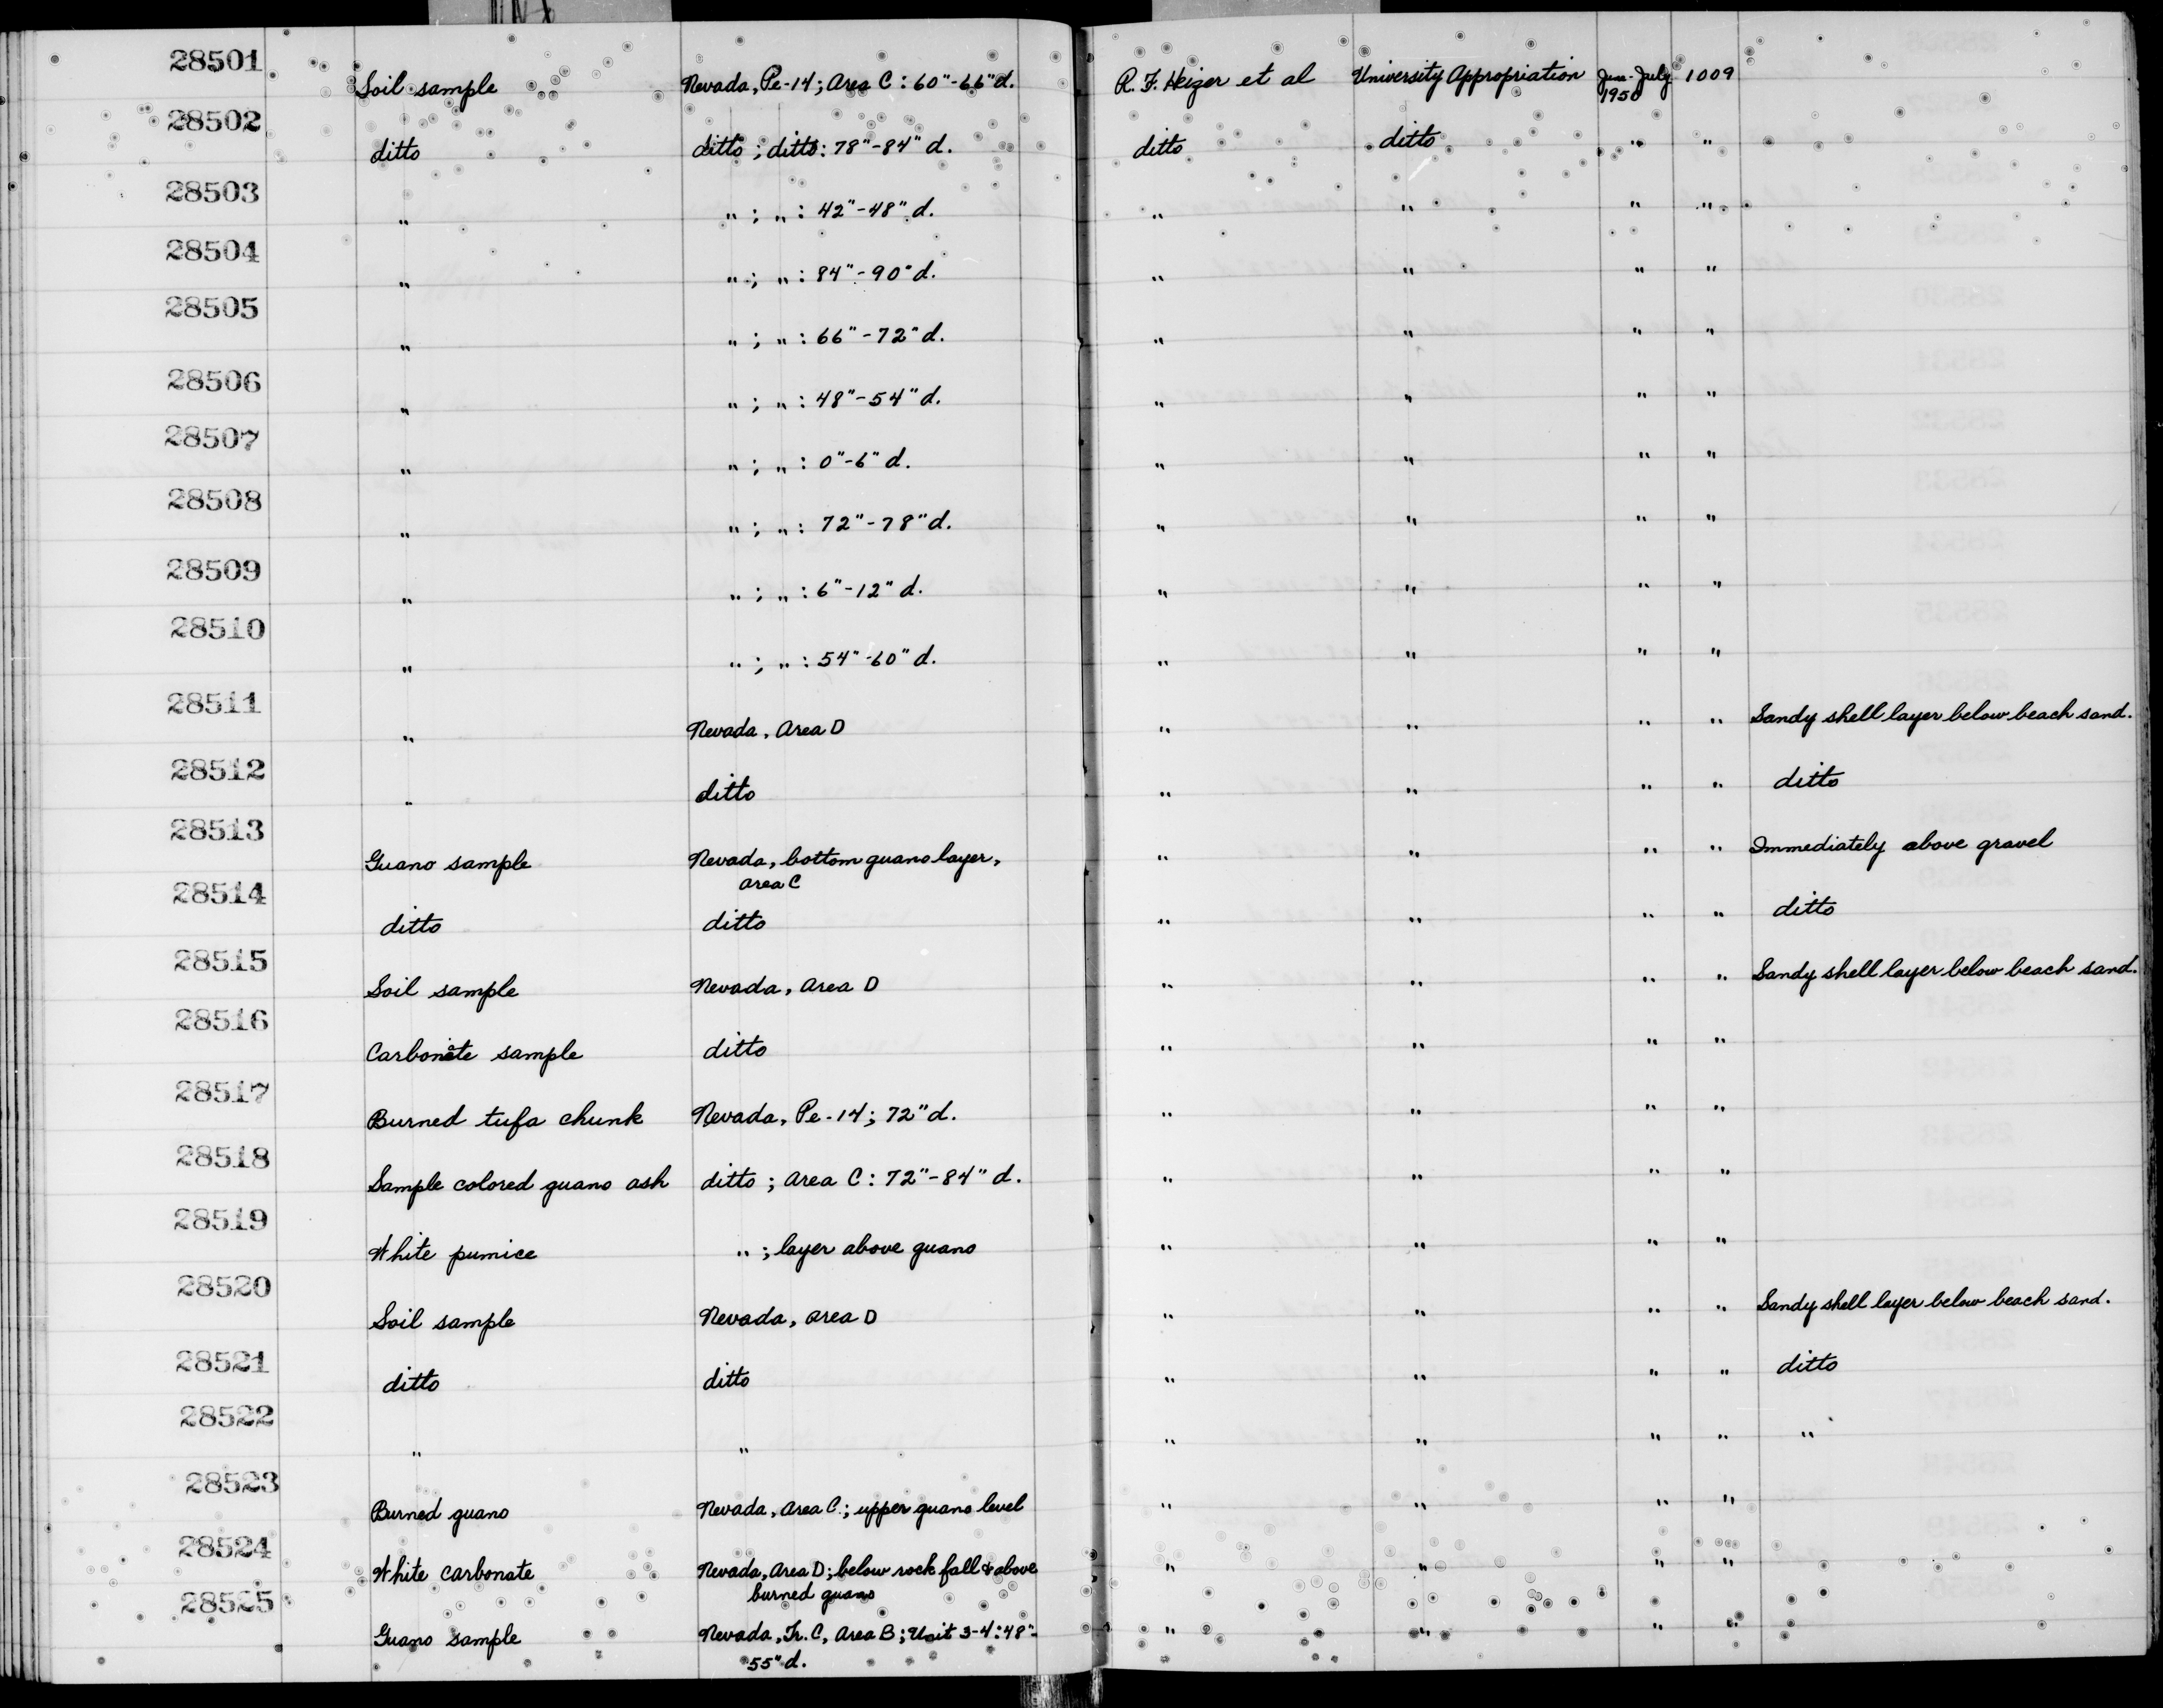 28501
Soil sample Nevada, Pe-14; Area C: 60"-66" d. R. F. Heizer et al University Appropriation June-July 1950 1009
28502
ditto ditto; ditto: 78"-84" d. ditto ditto " "
28503
" "; ": 42"-48" d. " " " "
28504
" "; ": 84"-90" d. " " " "
28505
" "; ": 66"-72" d. " " " "
28506
" "; ": 48"-54" d. " " " "
28507
" "; ": 0"-6" d. " " " "
28508
" "; ": 72"-78" d. " " " "
28509
" "; ": 6"-12" d. " " " "
28510
" "; ": 54"-60" d. " " " "
28511
" Nevada, Area D " " " " Sandy shell layer below beach sand.
28512
" ditto " " " " ditto
28513
Guano sample Nevada, bottom guano layer, " " " " Immediately above gravel
area C
28514
ditto ditto " " " " ditto
28515
Soil sample Nevada, Area D " " " " Sandy shell layer below beach sand.
28516
Carbonate sample ditto " " " "
28517
Burned tufa chunk Nevada, Pe-14; 72" d. " " " "
28518
Sample colored guano ash ditto; Area C: 72"-84" d. " " " "
28519
White pumice "; layer above guano " " " "
28520
Soil sample Nevada, Area D " " " " Sandy shell layer below beach sand.
28521
ditto ditto " " " " ditto
28522
" " " " " " "
28523
Burned guano Nevada, Area C.; upper guano level " " " "
28524
White carbonate Nevada, Area D; below rock fall & above " " " "
burned guano
28525
Guano sample Nevada, Tr. C, Area B; Unit 3-4: 48"- " " " "
55" d.